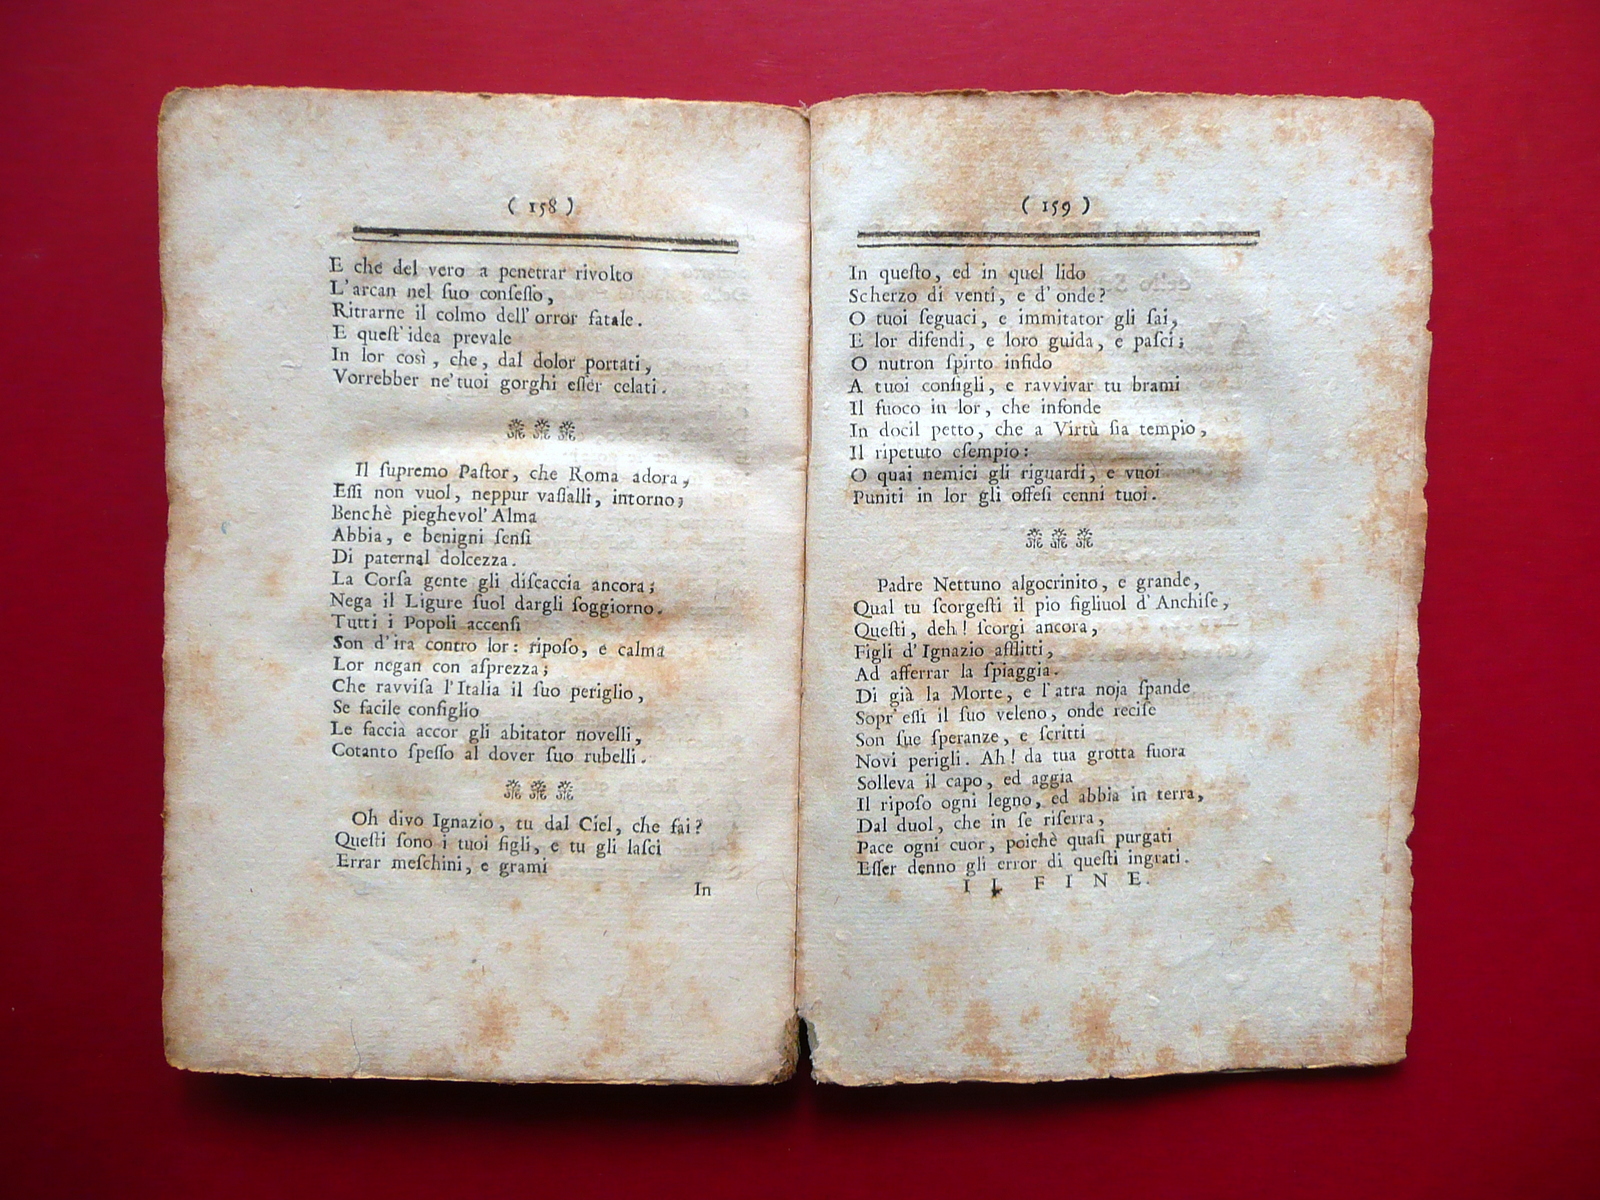 ( 158 )
E che del vero a penetrar rivolto
L'arcan nel ſuo conſeſſo,
Ritrarne il colmo dell' orror fatale.
E queſt' idea prevale
In lor così, che, dal dolor portati,
Vorrebber ne' tuoi gorghi eſſer celati.
Il ſupremo Paſtor, che Roma adora,
Eſſi non vuol, neppur vaſſalli, intorno;
Benchè pieghevol' Alma
Abbia, e benigni ſenſi
Di paternal dolcezza.
La Corſa gente gli diſcaccia ancora;
Nega il Ligure ſuol dargli ſoggiorno.
Tutti i Popoli accenſi
Son d' ira contro lor: ripoſo, e calma
Lor negan con aſprezza;
Che ravviſa l'Italia il ſuo periglio,
Se facile conſiglio
Le faccia accor gli abitator novelli,
Cotanto ſpeſſo al dover ſuo rubelli.
Oh divo Ignazio, tu dal Ciel, che fai?
Queſti ſono i tuoi figli, e tu gli laſci
Errar meſchini, e grami
In
( 159 )
In queſto, ed in quel lido
Scherzo di venti, e d' onde?
O tuoi ſeguaci, e immitator gli fai,
E lor difendi, e loro guida, e paſci;
O nutron ſpirto infido
A tuoi conſigli, e ravvivar tu brami
Il fuoco in lor, che infonde
In docil petto, che a Virtù ſia tempio,
Il ripetuto eſempio:
O quai nemici gli riguardi, e vuoi
Puniti in lor gli offeſi cenni tuoi.
Padre Nettuno algocrinito, e grande,
Qual tu ſcorgeſti il pio figliuol d' Anchiſe,
Queſti, deh! ſcorgi ancora,
Figli d' Ignazio afflitti,
Ad afferrar la ſpiaggia.
Di già la Morte, e l' atra noja ſpande
Sopr' eſſi il ſuo veleno, onde reciſe
Son ſue ſperanze, e ſcritti
Novi perigli. Ah! da tua grotta fuora
Solleva il capo, ed aggia
Il ripoſo ogni legno, ed abbia in terra,
Dal duol, che in ſe riſerra,
Pace ogni cuor, poichè quaſi purgati
Eſſer denno gli error di queſti ingrati.
IL FINE.